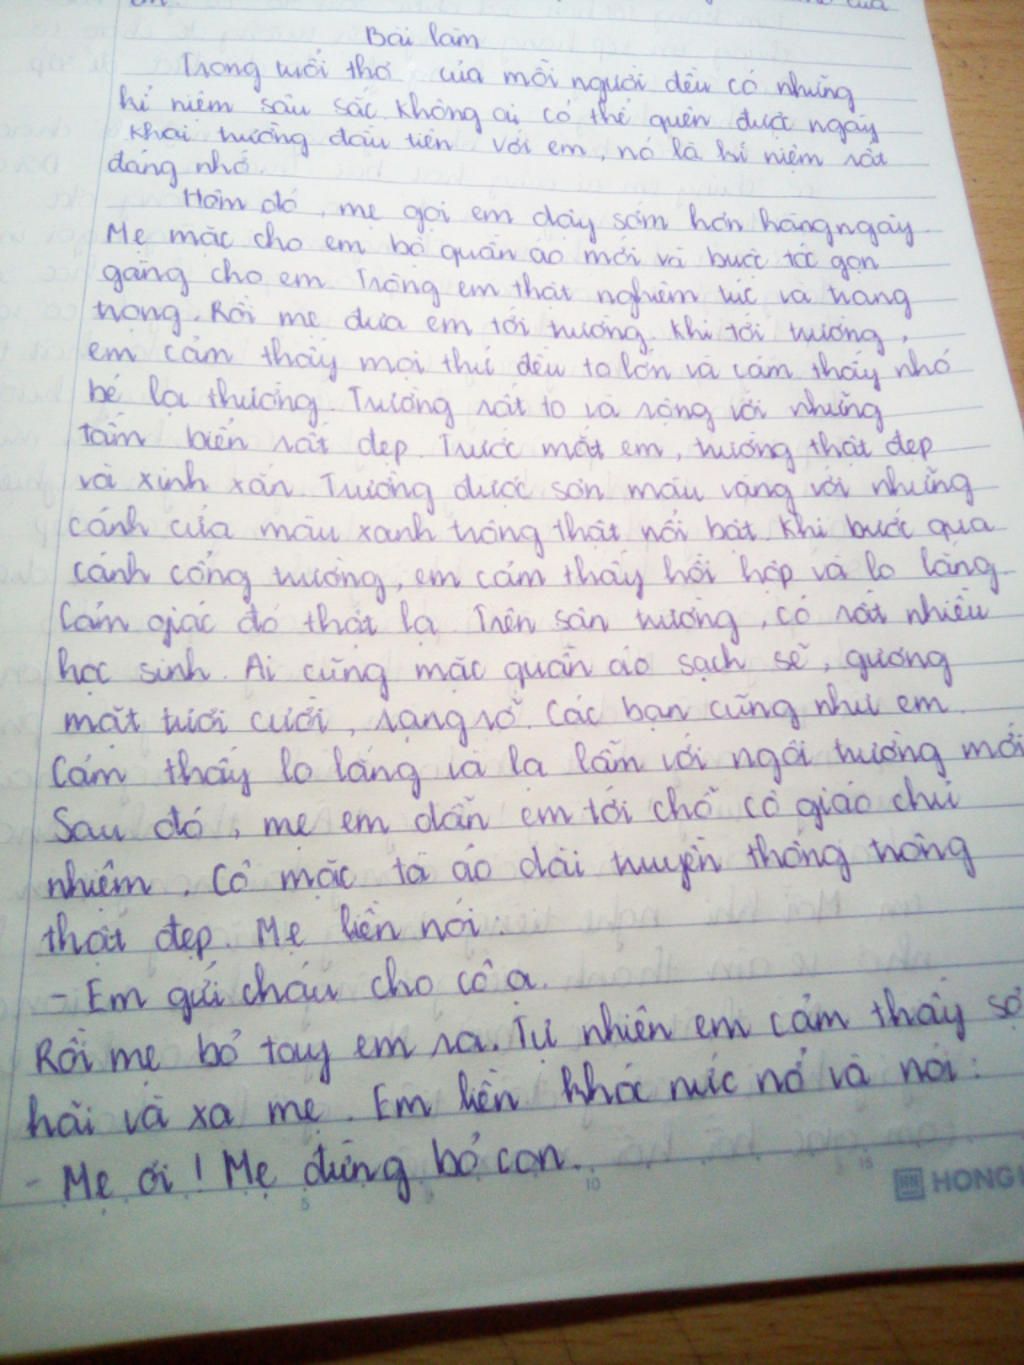 Bài làm
Trong tuổi thơ của mỗi người đều có những
kỉ niệm sâu sắc không ai có thể quên được ngày
khai trường đầu tiên với em, nó là kỉ niệm rất
đáng nhớ.
Hôm đó, mẹ gọi em dậy sớm hơn hàng ngày
Mẹ mặc cho em bộ quần áo mới và buộc tóc gọn
gàng cho em. Trông em thật nghiêm túc và trang
trọng. Rồi mẹ đưa em tới trường. Khi tới trường,
em cảm thấy mọi thứ đều to lớn và cảm thấy nhỏ
bé lạ thường. Trường rất to và rộng với những
tấm biển rất đẹp. Trước mắt em, trường thật đẹp
và xinh xắn. Trường được sơn màu vàng với những
cánh cửa màu xanh trông thật nổi bật. Khi bước qua
cánh cổng trường, em cảm thấy hồi hộp và lo lắng.
Cảm giác đó thật lạ. Trên sân trường, có rất nhiều
học sinh. Ai cũng mặc quần áo sạch sẽ, gương
mặt tươi cười, rạng rỡ. Các bạn cũng như em
Cảm thấy lo lắng và lạ lẫm với ngôi trường mới
Sau đó, mẹ em dẫn em tới chỗ cô giáo chủ
nhiệm. Cô mặc tà áo dài truyền thống trông
thật đẹp. Mẹ liền nói:
- Em gửi cháu cho cô ạ.
Rồi mẹ bỏ tay em ra. Tự nhiên em cảm thấy sợ
hãi và xa mẹ. Em liền khóc nức nở và nói:
- Mẹ ơi! Mẹ đừng bỏ con.
5
10
15
HONG